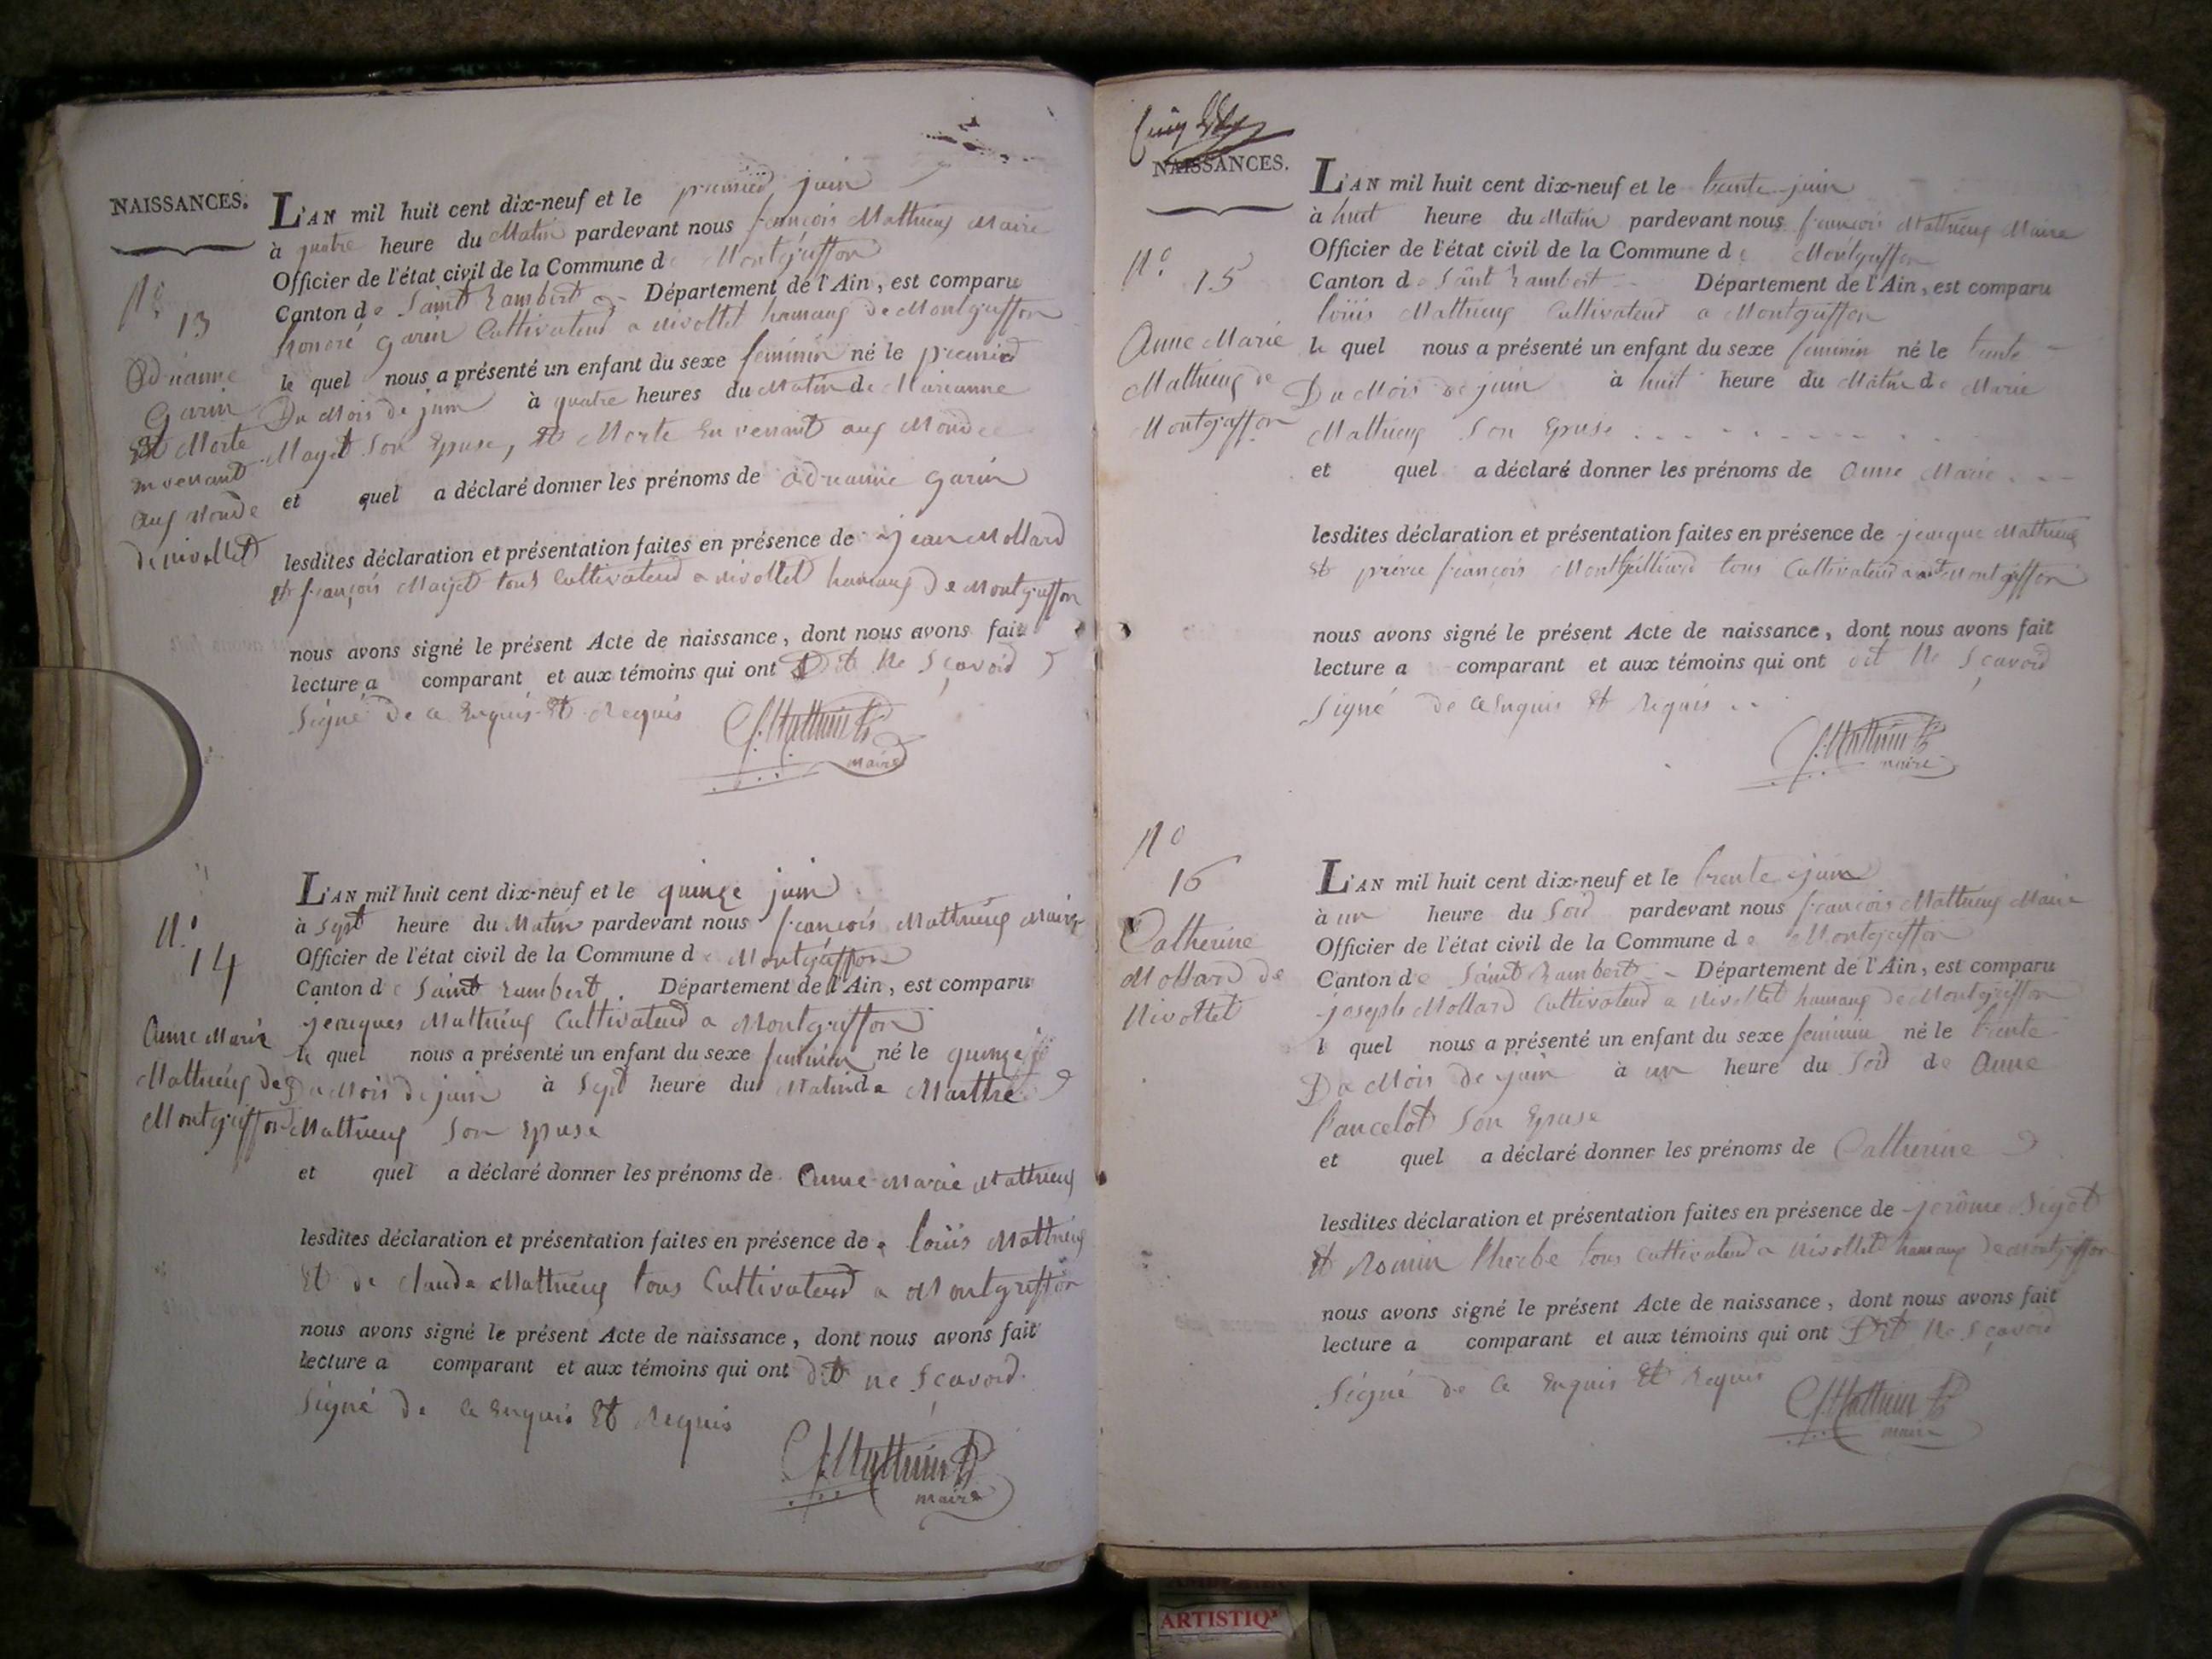 NAISSANCES.
N.o
13
Adrianne
Garin
Et Morte
en venant
aux Monde
de nivollet
L'AN mil huit cent dix-neuf et le premier juin
à quatre heure du Matin pardevant nous françois Mathieux Maire
Officier de l'état civil de la Commune de Montgriffon
Canton de Saint Rambert Département de l'Ain, est comparu
honoré garin Cultivateur a nivollet hamaux de Montgriffon
le quel nous a présenté un enfant du sexe feminin né le premier
Du Mois de juin à quatre heures du Matin de Marianne
Mayet Son Epuse, Et Morte En venant aux Monde
et quel a déclaré donner les prénoms de Adrianne garin
lesdites déclaration et présentation faites en présence de jean Mollard
Et françois Mayet tous Cultivateur a nivollet hamaux de Montgriffon
nous avons signé le présent Acte de naissance, dont nous avons fait
lecture a comparant et aux témoins qui ont Dit Ne Sçavoir
Signé de ce Enquis Et Requis
f. Mathieux
maire
N.o
14
Anne Marie
Mathieux de
Montgriffon
L'AN mil huit cent dix-neuf et le quinze juin
à Sept heure du Matin pardevant nous françois Mathieux Maire
Officier de l'état civil de la Commune de Montgriffon
Canton de Saint Rambert. Département de l'Ain, est comparu
jeacques Mathieux Cultivateur a Montgriffon
le quel nous a présenté un enfant du sexe feminin né le quinze
Du Mois de juin à Sept heure du Matin de Marthe
Mathieux Son Epuse
et quel a déclaré donner les prénoms de Anne Marie Mathieux
lesdites déclaration et présentation faites en présence de louïs Mathieux
Et de claude Mathieux tous Cultivateur a Montgriffon
nous avons signé le présent Acte de naissance, dont nous avons fait
lecture a comparant et aux témoins qui ont dit ne Sçavoir
Signé de ce Enquis Et Requis
f. Mathieux
maire
NAISSANCES.
N.o
15
Anne Marie
Mathieux de
Montgriffon
L'AN mil huit cent dix-neuf et le trente juin
à huit heure du Matin pardevant nous françois Mathieux Maire
Officier de l'état civil de la Commune de Montgriffon
Canton de Saint Rambert Département de l'Ain, est comparu
louïs Mathieux Cultivateur a Montgriffon
le quel nous a présenté un enfant du sexe feminin né le trente
Du Mois de juin à huit heure du Matin de Marie
Mathieux Son Epuse
et quel a déclaré donner les prénoms de Anne Marie
lesdites déclaration et présentation faites en présence de jeacque Mathieux
Et françois tous Cultivateur Montgriffon
nous avons signé le présent Acte de naissance, dont nous avons fait
lecture a comparant et aux témoins qui ont dit Ne Sçavoir
Signé de ce Enquis Et Requis
f. Mathieux
maire
No
16
Catherine
Mollard de
Nivollet
L'AN mil huit cent dix-neuf et le trente juin
à un heure du Soir pardevant nous françois Mathieux Maire
Officier de l'état civil de la Commune de Montgriffon
Canton de Saint Rambert Département de l'Ain, est comparu
joseph Mollard Cultivateur a Nivollet hamaux de Montgriffon
l quel nous a présenté un enfant du sexe feminin né le trente
Du Mois de juin à un heure du Soir de Anne
lancelot Son Epuse
et quel a déclaré donner les prénoms de Catherine
lesdites déclaration et présentation faites en présence de jerôme
Et Romin l'herbe tous Cultivateur a Nivollet hamaux de Montgriffon
nous avons signé le présent Acte de naissance, dont nous avons fait
lecture a comparant et aux témoins qui ont Dit Ne Sçavoir
Signé de ce Enquis Et Requis
f. Mathieux
maire
ARTISTIQ